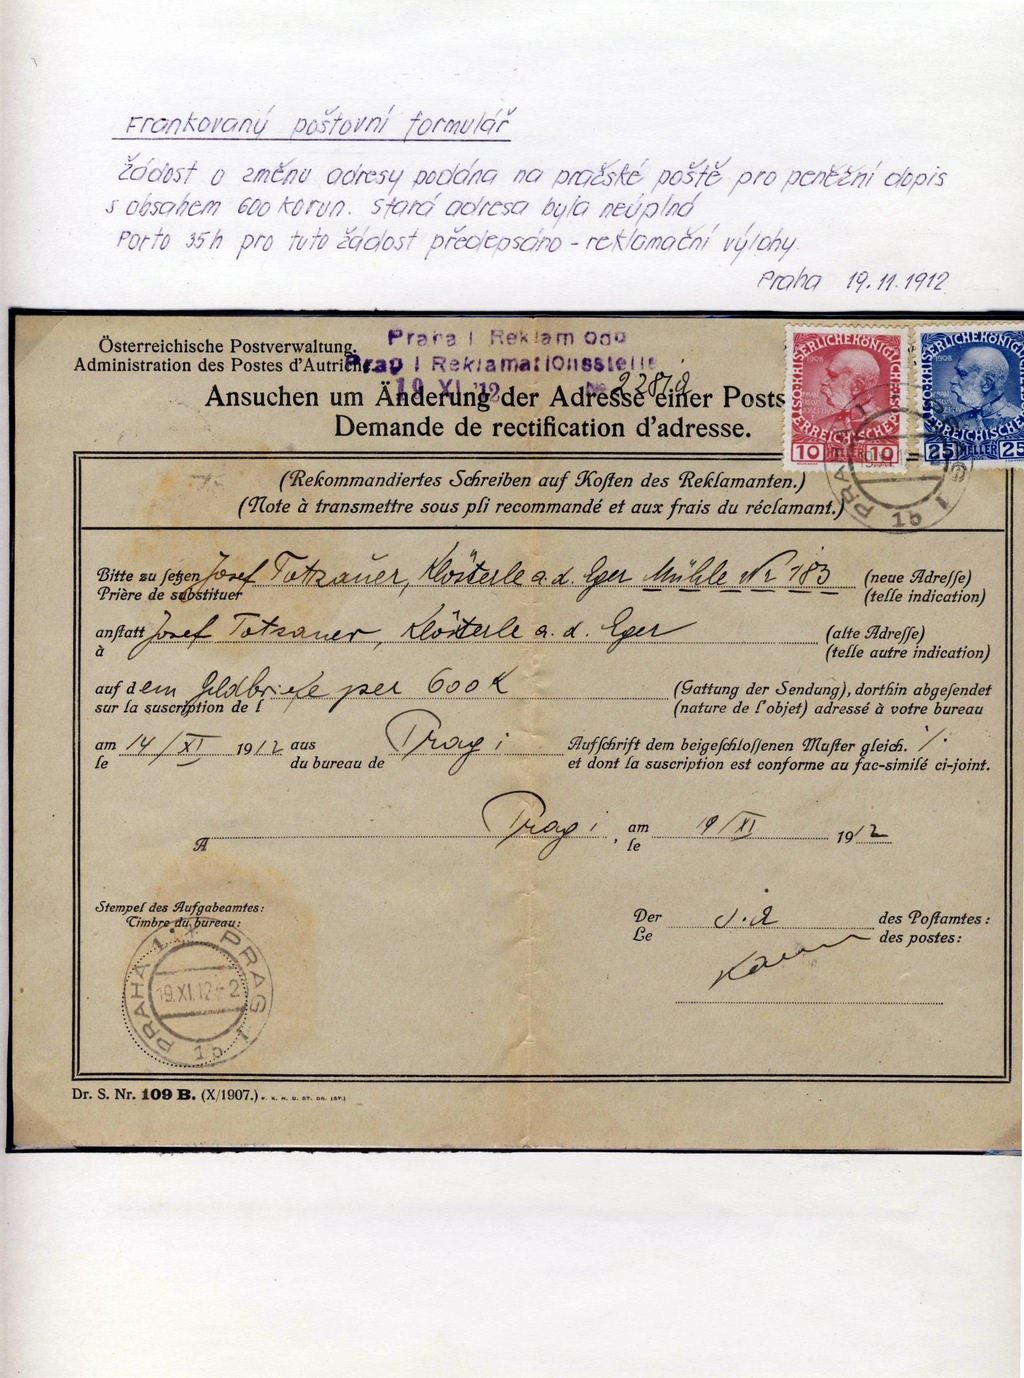 Frankovaný poštovní formulář
Žádost o změnu adresy podána na pražské poště pro peněžní dopis
s obsahem 600 korun. Stará adresa byla neúplná
Porto 35h pro tuto žádost předepsáno - reklamační výlohy.
Praha 19.11.1912
Österreichische Postverwaltung.
Administration des Postes d'Autriche.
Praha 1 Reklam odd
Prag 1 Reklamationsstelle
19 XI. '12 №
Ansuchen um Änderung der Adresse einer Posts
Demande de rectification d'adresse.
10 HELLER 10
25 HELLER 25
(Rekommandiertes Schreiben auf Kosten des Reklamanten.)
(Note à transmettre sous pli recommandé et aux frais du réclamant.)
PRAHA 1 1b
Bitte zu setzen Josef Totzauer, Klösterle a. d. Eger Mühle Nr 183 (neue Adresse)
Prière de substituer (telle indication)
anstatt Josef Totzauer, Klösterle a. d. Eger (alte Adresse)
à (telle autre indication)
auf dem Geldbriefe per 600 K (Gattung der Sendung), dorthin abgesendet
sur la suscription de l (nature de l'objet) adressé à votre bureau
am 14/XI 1912 aus Prag 1 Aufschrift dem beigeschlossenen Muster gleich. ·/·
le du bureau de et dont la suscription est conforme au fac-similé ci-joint.
A Prag 1, am 19/XI 1912
le
Stempel des Aufgabeamtes:
Timbre du bureau:
Der des Postamtes:
Le des postes:
PRAHA 1 * PRAG 1
19.XI.12 - 2
1b
Dr. S. Nr. 109 B. (X/1907.) K. K. H. U. ST. DR. (ST.)